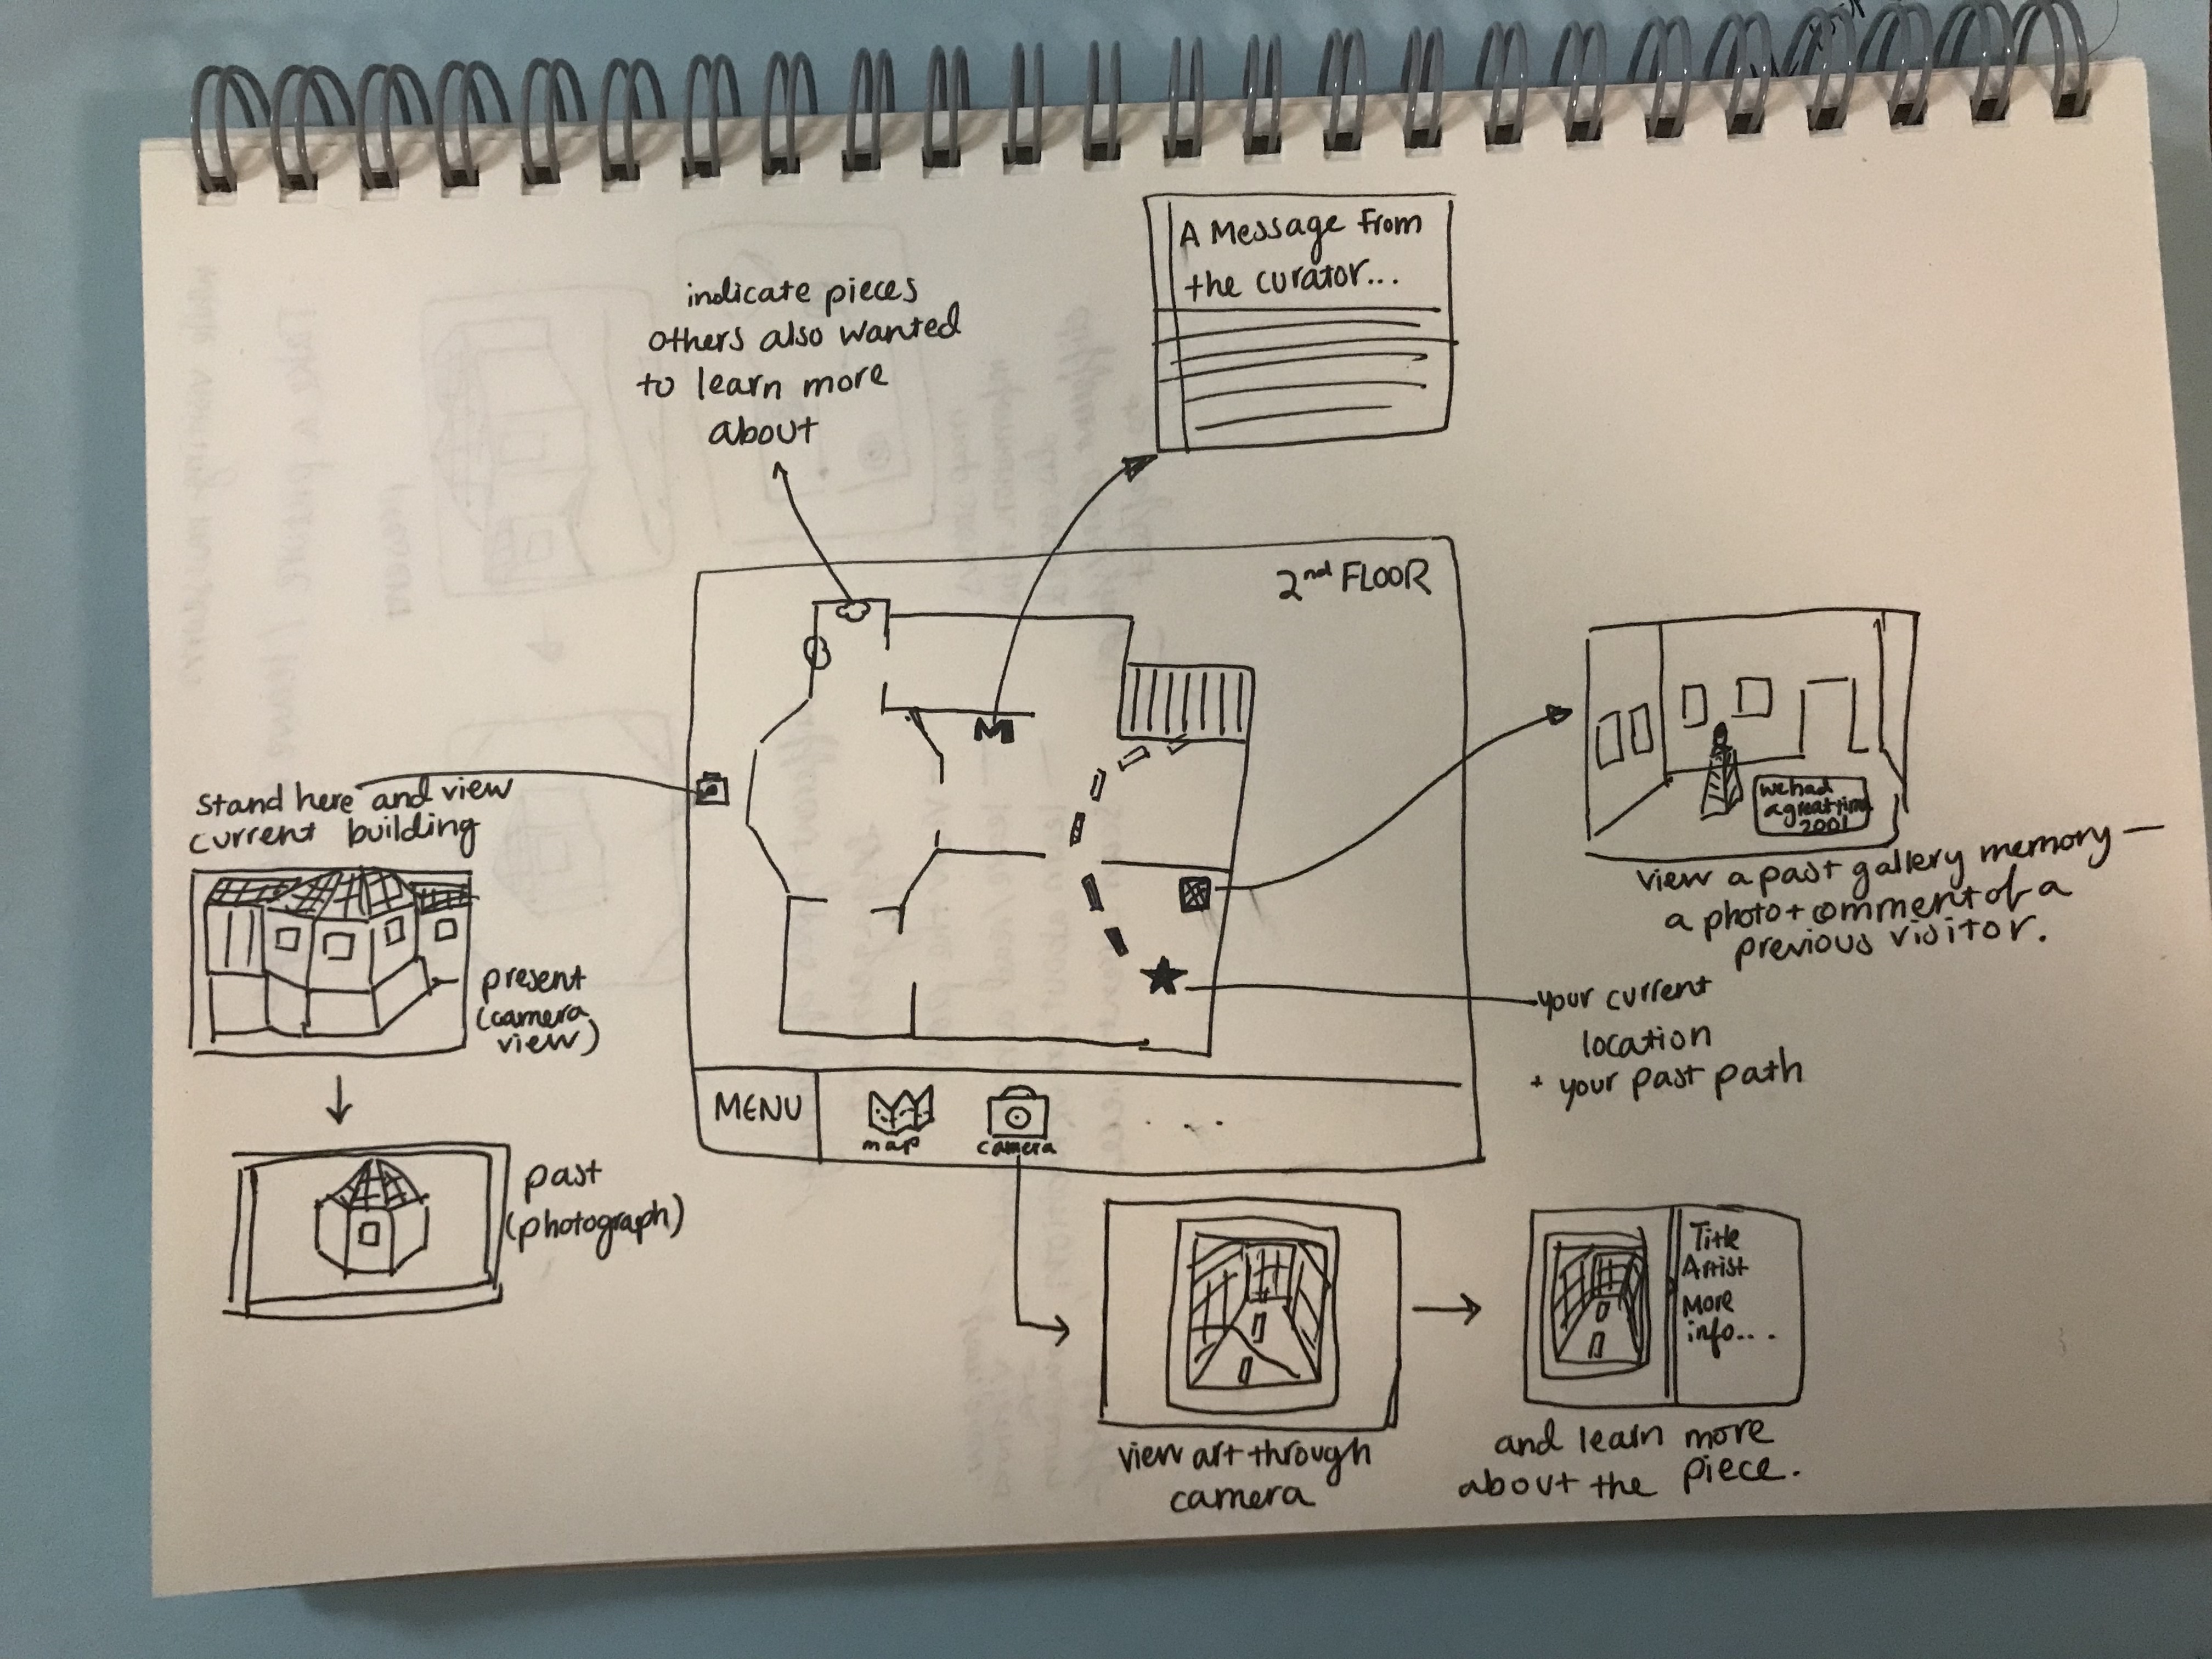 A Message from
the curator...
indicate pieces
others also wanted
to learn more
about
2nd FLOOR
M
stand here and view
current building
present
(camera
view)
past
(photograph)
we had
a great time
2001
view a past gallery memory —
a photo + comment of a
previous visitor.
your current
location
+ your past path
MENU
map
camera
...
view art through
camera
Title
Artist
More
info...
and learn more
about the piece.